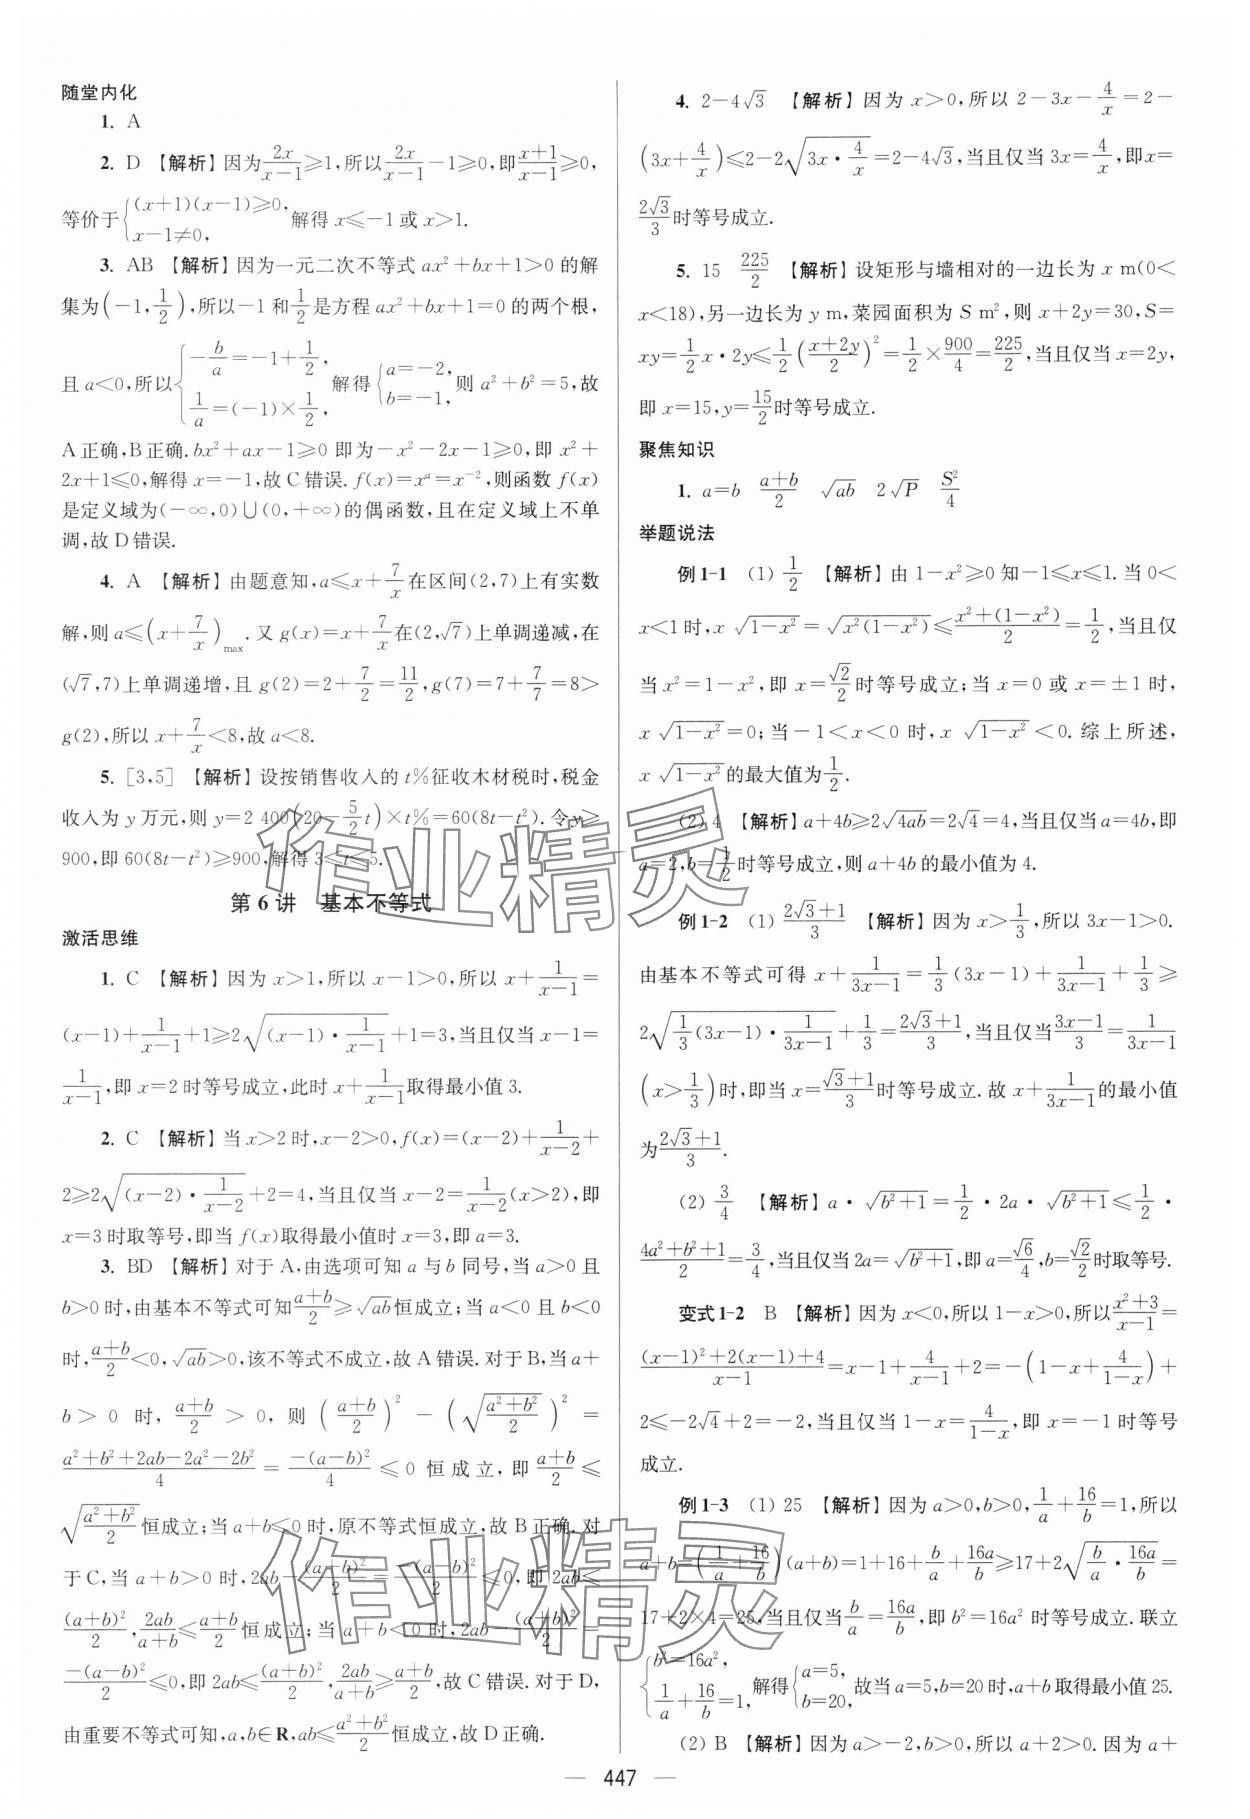 随堂内化
1. A
2. D 【解析】因为2x/(x−1)≥1,所以2x/(x−1)−1≥0,即(x+1)/(x−1)≥0,
等价于{(x+1)(x−1)≥0, x−1≠0, 解得 x≤−1 或 x>1.
3. AB 【解析】因为一元二次不等式 ax²+bx+1>0 的解
集为(−1,1/2),所以−1 和1/2是方程 ax²+bx+1=0 的两个根,
且 a<0,所以{−b/a=−1+1/2, 1/a=(−1)×1/2, 解得{a=−2, b=−1, 则 a²+b²=5,故
A 正确,B 正确. bx²+ax−1≥0 即为−x²−2x−1≥0,即 x²+
2x+1≤0,解得 x=−1,故 C 错误. f(x)=xᵃ=x⁻²,则函数 f(x)
是定义域为(−∞,0)∪(0,+∞)的偶函数,且在定义域上不单
调,故 D 错误.
4. A 【解析】由题意知,a≤x+7/x在区间(2,7)上有实数
解,则 a≤(x+7/x)max. 又 g(x)=x+7/x在(2,√7)上单调递减,在
(√7,7)上单调递增,且 g(2)=2+7/2=11/2,g(7)=7+7/7=8>
g(2),所以 x+7/x<8,故 a<8.
5. [3,5] 【解析】设按销售收入的 t%征收木材税时,税金
收入为 y 万元,则 y=2 400(20−5/2t)×t%=60(8t−t²).令 y≥
900,即 60(8t−t²)≥900,解得 3≤t≤5.
第 6 讲 基本不等式
激活思维
1. C 【解析】因为 x>1,所以 x−1>0,所以 x+1/(x−1)=
(x−1)+1/(x−1)+1≥2√((x−1)·1/(x−1))+1=3,当且仅当 x−1=
1/(x−1),即 x=2 时等号成立,此时 x+1/(x−1)取得最小值 3.
2. C 【解析】当 x>2 时,x−2>0,f(x)=(x−2)+1/(x−2)+
2≥2√((x−2)·1/(x−2))+2=4,当且仅当 x−2=1/(x−2)(x>2),即
x=3 时取等号,即当 f(x)取得最小值时 x=3,即 a=3.
3. BD 【解析】对于 A,由选项可知 a 与 b 同号,当 a>0 且
b>0 时,由基本不等式可知(a+b)/2≥√ab恒成立;当 a<0 且 b<0
时,(a+b)/2<0,√ab>0,该不等式不成立,故 A 错误. 对于 B,当 a+
b>0 时,(a+b)/2>0,则((a+b)/2)²−(√((a²+b²)/2))²=
(a²+b²+2ab−2a²−2b²)/4=−(a−b)²/4≤0 恒成立,即(a+b)/2≤
√((a²+b²)/2)恒成立;当 a+b≤0 时,原不等式恒成立,故 B 正确. 对
于 C,当 a+b>0 时,2ab−(a+b)²/2=−(a−b)²/2≤0,即 2ab≤
(a+b)²/2,2ab/(a+b)≤(a+b)/2恒成立;当 a+b<0 时,2ab−(a+b)²/2=
−(a−b)²/2≤0,即 2ab≤(a+b)²/2,2ab/(a+b)≥(a+b)/2,故 C 错误. 对于 D,
由重要不等式可知,a,b∈R,ab≤(a²+b²)/2恒成立,故 D 正确.
4. 2−4√3 【解析】因为 x>0,所以 2−3x−4/x=2−
(3x+4/x)≤2−2√(3x·4/x)=2−4√3,当且仅当 3x=4/x,即 x=
2√3/3时等号成立.
5. 15 225/2 【解析】设矩形与墙相对的一边长为 x m(0<
x<18),另一边长为 y m,菜园面积为 S m²,则 x+2y=30,S=
xy=1/2x·2y≤1/2((x+2y)/2)²=1/2×900/4=225/2,当且仅当 x=2y,
即 x=15,y=15/2时等号成立.
聚焦知识
1. a=b (a+b)/2 √ab 2√P S²/4
举题说法
例 1-1 (1) 1/2 【解析】由 1−x²≥0 知−1≤x≤1. 当 0<
x<1 时,x√(1−x²)=√(x²(1−x²))≤(x²+(1−x²))/2=1/2,当且仅
当 x²=1−x²,即 x=√2/2时等号成立;当 x=0 或 x=±1 时,
x√(1−x²)=0;当−1<x<0 时,x√(1−x²)<0. 综上所述,
x√(1−x²)的最大值为1/2.
(2) 4 【解析】a+4b≥2√4ab=2√4=4,当且仅当 a=4b,即
a=2,b=1/2时等号成立,则 a+4b 的最小值为 4.
例 1-2 (1) (2√3+1)/3 【解析】因为 x>1/3,所以 3x−1>0.
由基本不等式可得 x+1/(3x−1)=1/3(3x−1)+1/(3x−1)+1/3≥
2√(1/3(3x−1)·1/(3x−1))+1/3=(2√3+1)/3,当且仅当(3x−1)/3=1/(3x−1)
(x>1/3)时,即当 x=(√3+1)/3时等号成立. 故 x+1/(3x−1)的最小值
为(2√3+1)/3.
(2) 3/4 【解析】a·√(b²+1)=1/2·2a·√(b²+1)≤1/2·
(4a²+b²+1)/2=3/4,当且仅当 2a=√(b²+1),即 a=√6/4,b=√2/2时取等号.
变式 1-2 B 【解析】因为 x<0,所以 1−x>0,所以(x²+3)/(x−1)=
((x−1)²+2(x−1)+4)/(x−1)=x−1+4/(x−1)+2=−(1−x+4/(1−x))+
2≤−2√4+2=−2,当且仅当 1−x=4/(1−x),即 x=−1 时等号
成立.
例 1-3 (1) 25 【解析】因为 a>0,b>0,1/a+16/b=1,所以
a+b=(1/a+16/b)(a+b)=1+16+b/a+16a/b≥17+2√(b/a·16a/b)=
17+2×4=25,当且仅当b/a=16a/b,即 b²=16a² 时等号成立. 联立
{b²=16a², 1/a+16/b=1, 解得{a=5, b=20, 故当 a=5,b=20 时,a+b 取得最小值 25.
(2) B 【解析】因为 a>−2,b>0,所以 a+2>0. 因为 a+
— 447 —
作业精灵
作业精灵